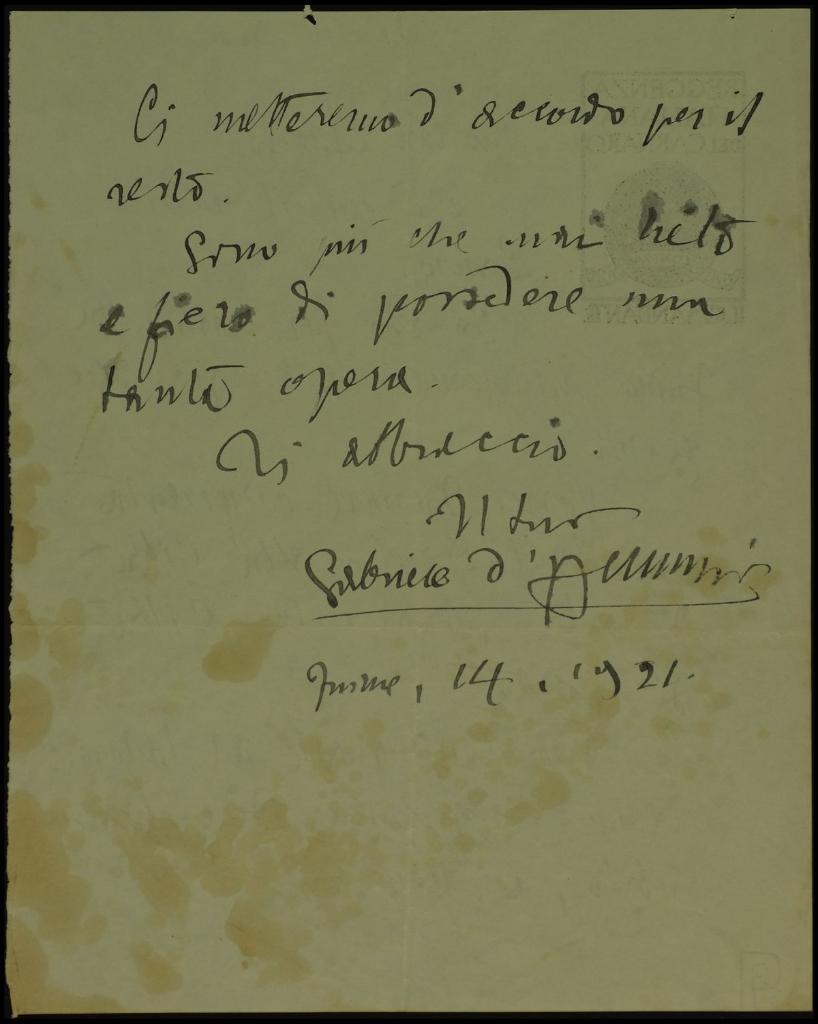 Ci metteremo d'accordo per il
resto.
Sono più che mai lieto
e fiero di possedere una
tanta opera.
Ti abbraccio.
Il tuo
Gabriele d'Annunzio
Fiume, 14, 1921.